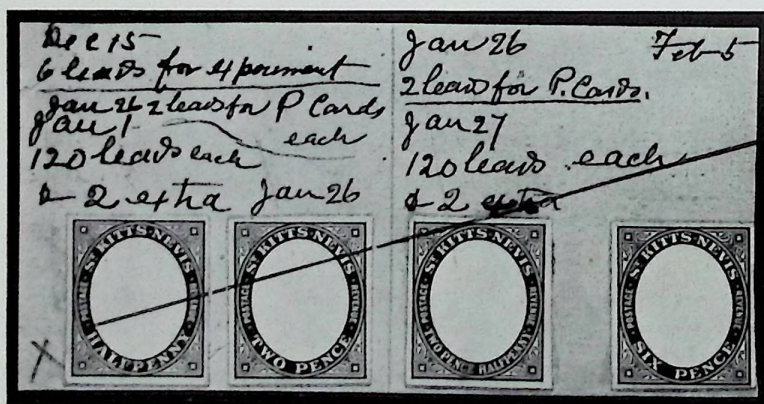 Dec 15
6 leads for
Jan 26 2 leads for P Cards
each
Jan 1
120 leads each
& 2 extra Jan 26
Jan 26
Feb 5
2 leads for P. Cards.
Jan 27
120 leads each
& 2 extra
X
ST KITTS-NEVIS
POSTAGE
REVENUE
HALFPENNY
ST KITTS-NEVIS
POSTAGE
REVENUE
TWO PENCE
ST KITTS-NEVIS
POSTAGE
REVENUE
TWO PENCE HALFPENNY
ST KITTS-NEVIS
POSTAGE
REVENUE
SIX PENCE